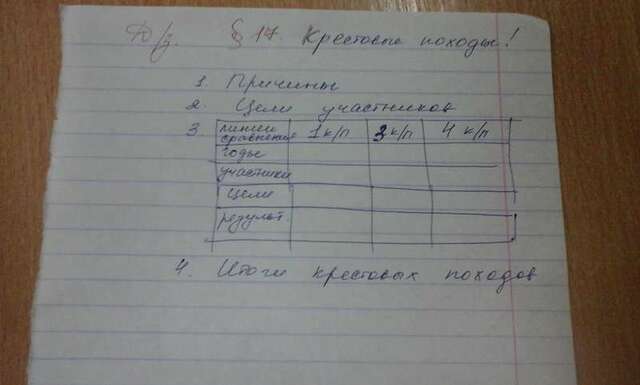 Д/з. § 17. Крестовые походы!
1. Причины
2. Цели участников
3. линии сравнения 1 к/п 3 к/п 4 к/п
годы
участники
цели
результ.
4. Итоги крестовых походов